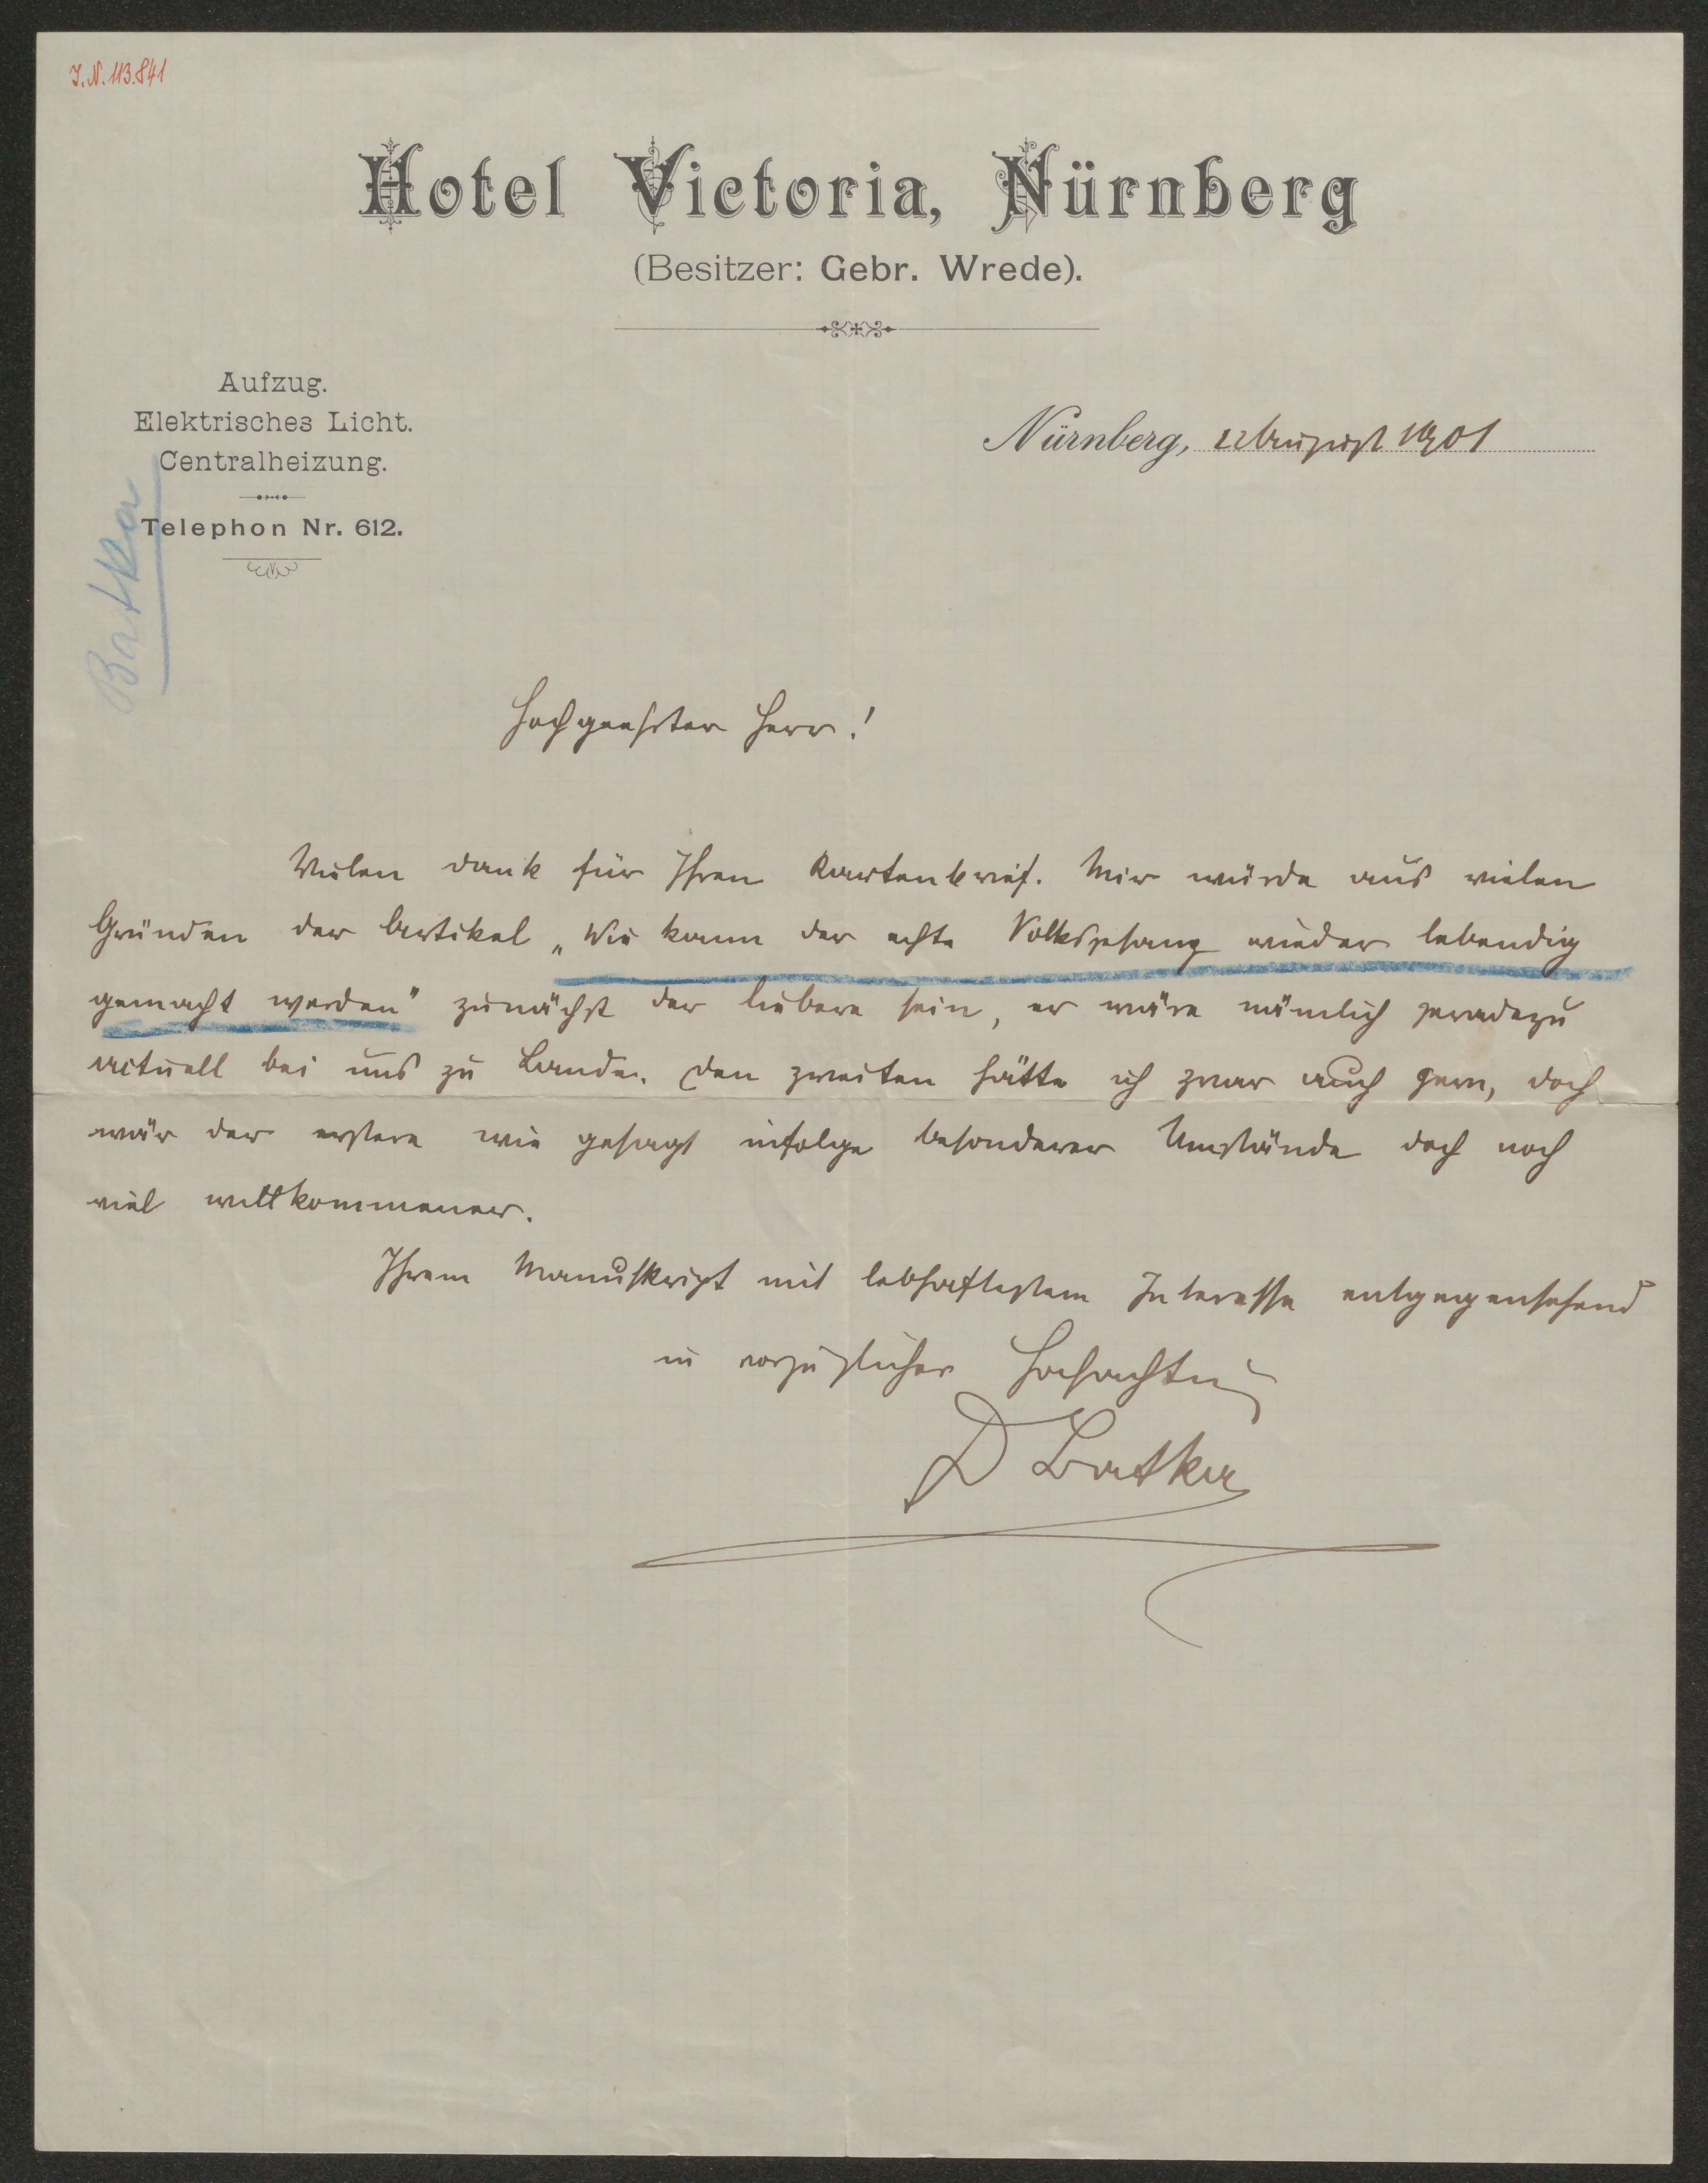 J. N. 113.841
Hotel Victoria, Nürnberg
(Besitzer: Gebr. Wrede).
Aufzug.
Elektrisches Licht.
Centralheizung.
Telephon Nr. 612.
Batka
Nürnberg, 22 August 1901
Hochgeehrter Herr!
Vielen Dank für Ihren Kartenbrief. Mir würde aus vielen
Gründen der Artikel „Wie kann der echte Volksgesang wieder lebendig
gemacht werden" zunächst der liebere sein, er wäre nämlich geradezu
actuell bei uns zu Lande. Den zweiten hätte ich zwar auch gern, doch
wär der erstere wie gesagt infolge besonderer Umstände doch noch
viel willkommener.
Ihrem Manuskript mit lebhaftestem Interesse entgegensehend
in vorzüglicher Hochachtung
D Batka